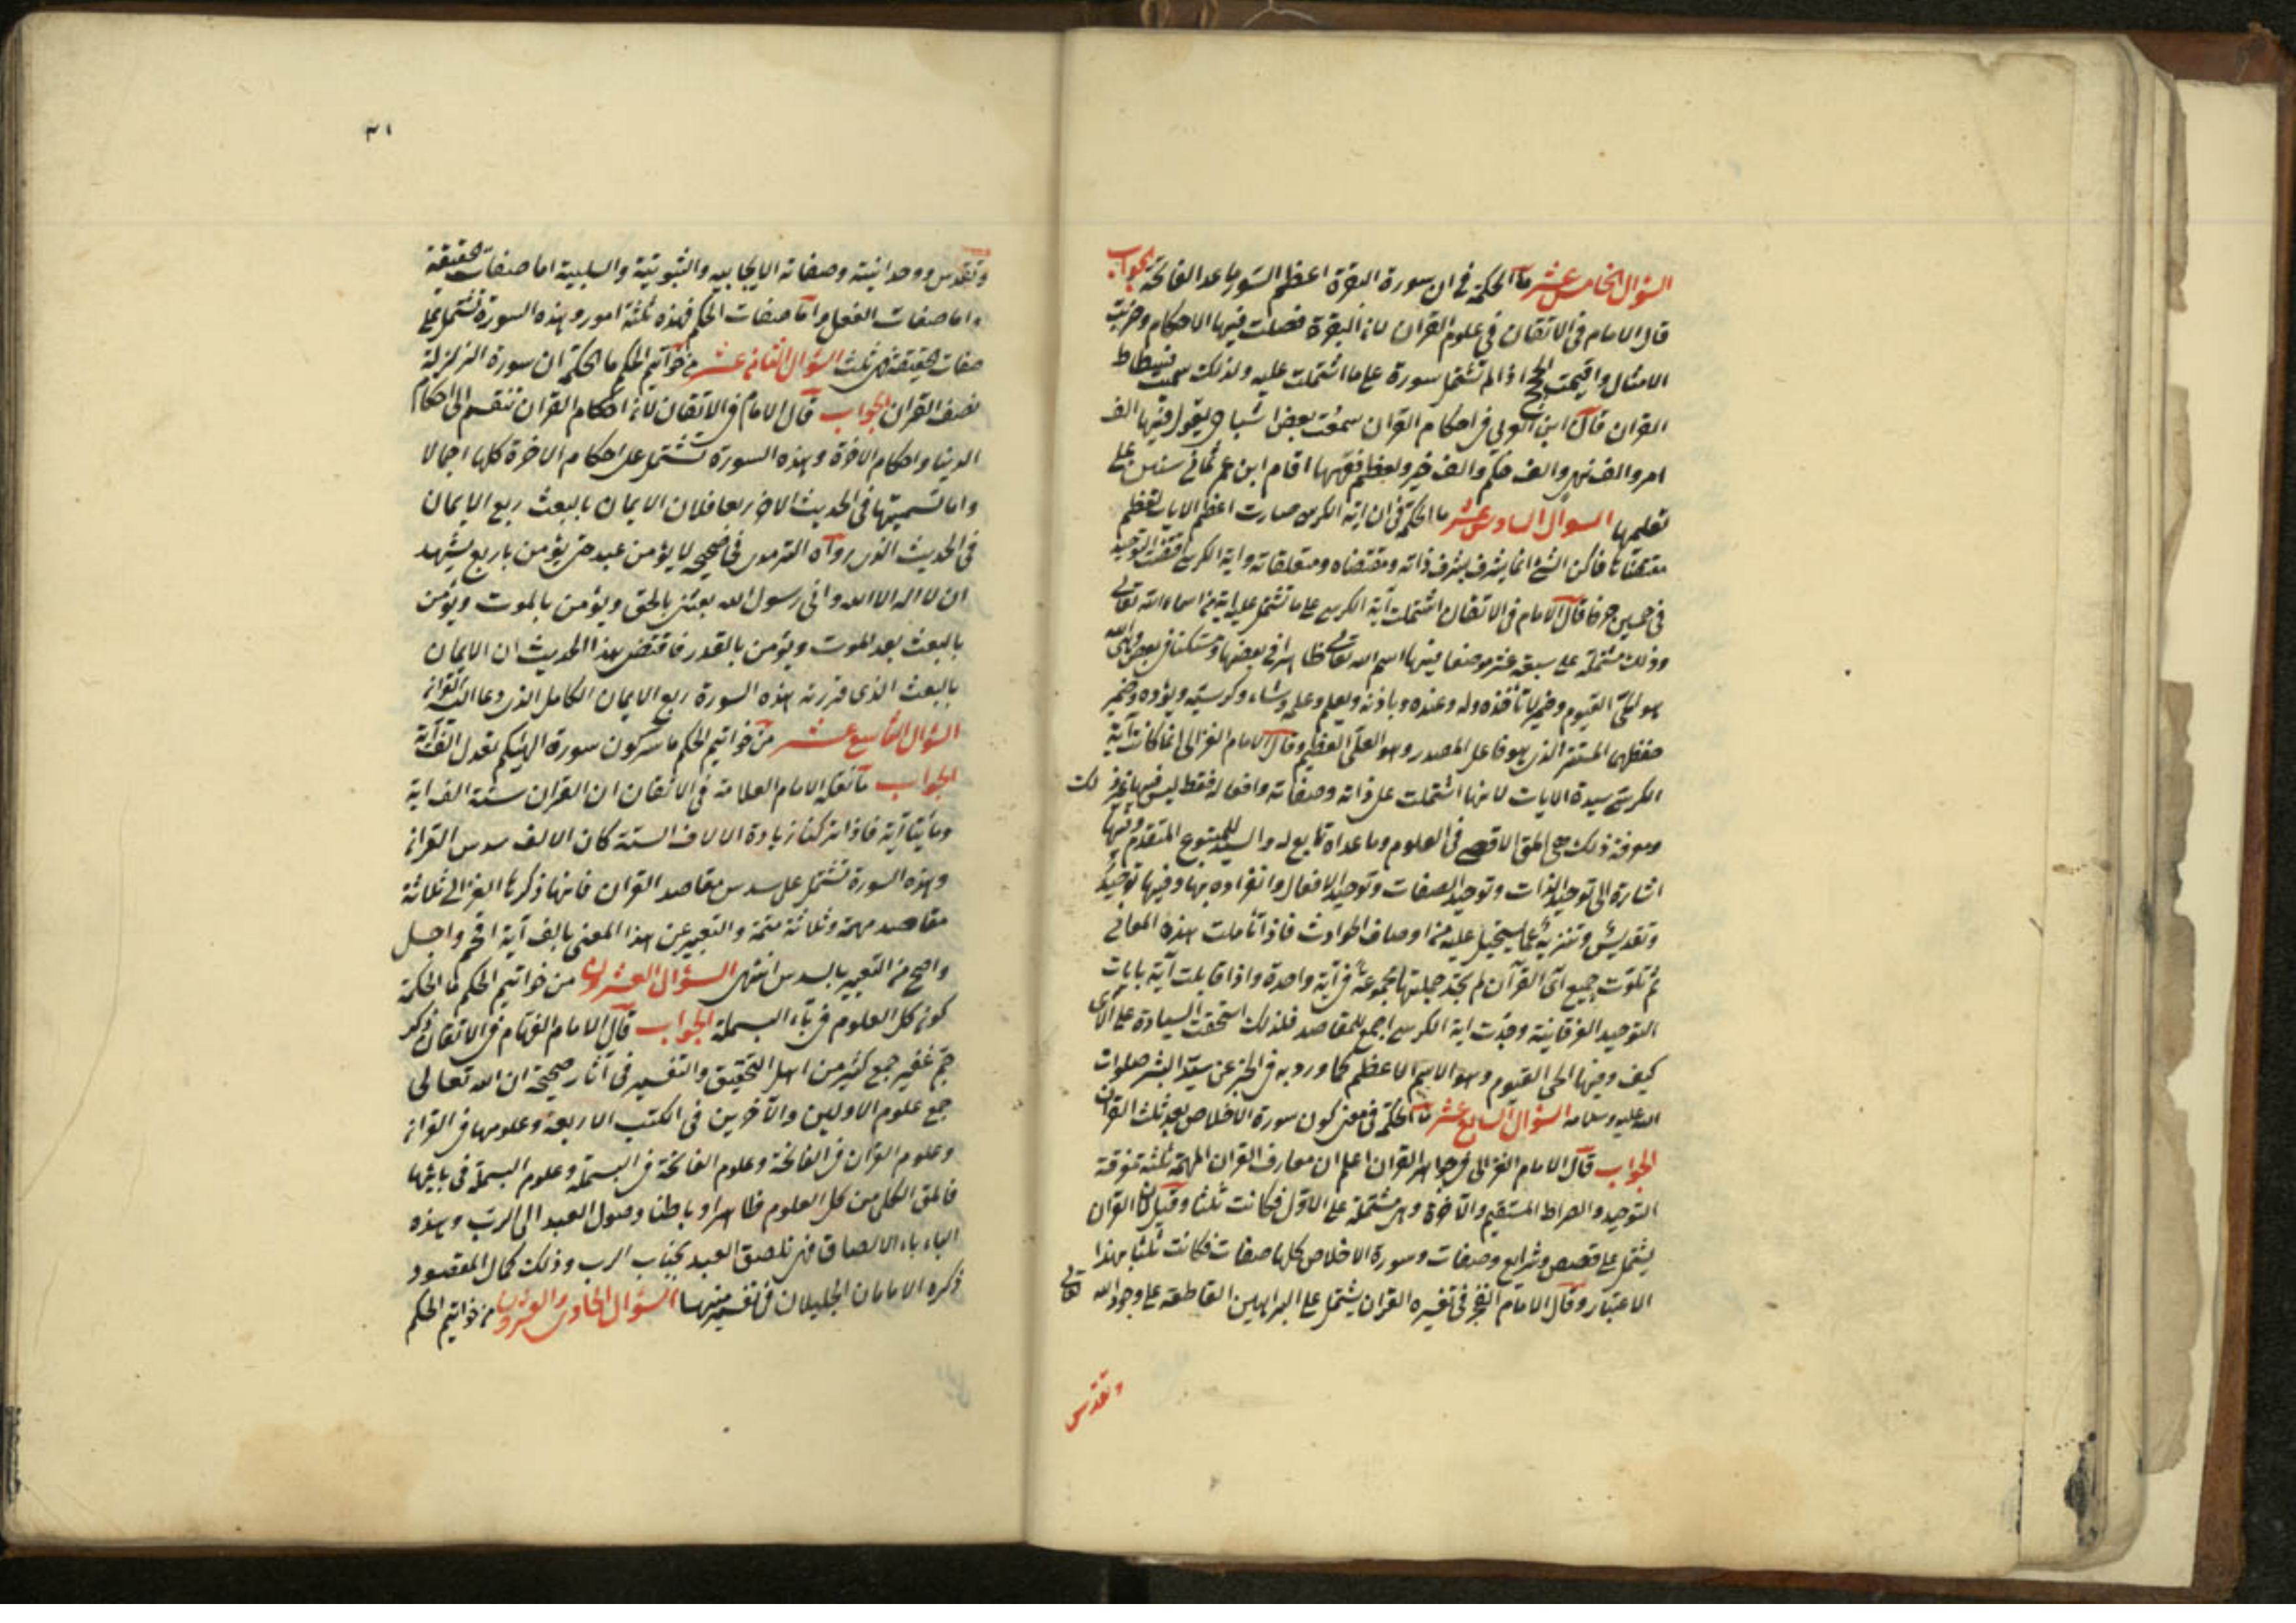 السؤال الخامس عشر ما الحكمة في ان سورة البقرة اعظم السور ما عدا الفاتحة الجواب
قال الامام في الاتقان في علوم القران لان البقرة فصلت فيها الاحكام وضربت
الامثال واقيمت الحجج اذ لم تشتمل سورة على ما اشتملت عليه ولذلك سميت فسطاط
القران قال ابن العربي في احكام القران سمعت بعض اشياخي يقول فيها الف
امر والف نهي والف حكم والف خبر ولعظم فقهها اقام ابن عمر ثماني سنين على
تعلمها السؤال السادس عشر ما الحكمة في ان اية الكرسي صارت اعظم الايات لعظم
مقتضاها فان الشئ انما يشرف بشرف ذاته ومقتضاه ومتعلقاته واية الكرسي
في خمسين حرفا قال الامام في الاتقان اشتملت آية الكرسي على ما تشتمل عليه اية من اسماء الله تعالى
وذلك مشتملة على سبعة عشر موضعا فيها اسم الله تعالى ظاهرا في بعضها ومستكنا في بعض وهي الله
هو الحي القيوم وضمير لا تأخذه وله وعنده وباذنه ويعلم وعلمه وشاء وكرسيه ويؤده وضمير
حفظهما المستتر الذي هو فاعل المصدر وهو العلي العظيم وقال الامام الغزالي انما كانت آية
الكرسي سيدة الايات لانها اشتملت على ذاته وصفاته وافعاله فقط ليس فيها غير ذلك
ومعرفة ذلك هي المقصد الاقصى في العلوم وما عداه تابع له والسيد للمتبوع المتقدم وفيها
اشارة الى توحيد الذات وتوحيد الصفات وتوحيد الافعال وانفراده بها وفيها توحيده
وتقديس وتنزيه عما يستحيل عليه من اوصاف الحوادث فاذا تأملت هذه المعاني
ثم تلوت جميع آي القرآن لم تجد جملتها مجموعة في آية واحدة واذا قابلت آية بايات
التوحيد الفرقانية وجدت اية الكرسي اجمع للمقاصد فلذلك استحقت السيادة على الآي
كيف وفيها الحي القيوم وهو الاسم الاعظم كما ورد به في الخبر عن سيد البشر صلوات
الله عليه وسلامه السؤال السابع عشر ما الحكمة في معنى كون سورة الاخلاص تعدل ثلث القران
الجواب قال الامام الغزالي في جواهر القران اعلم ان معارف القران المهمة ثلثة معرفة
التوحيد والصراط المستقيم والآخرة وهي مشتملة على الاول فكانت ثلثا وقيل لان القران
يشتمل على قصص وشرايع وصفات وسورة الاخلاص كلها صفات فكانت ثلثا بهذا
الاعتبار وقال الامام الفخر في تفسيره القران يشتمل على البراهين القاطعة على وجود الله تعالى
وتقدس
٣١
وتقدس ووحدانيته وصفاته الايجابية والثبوتية والسلبية اما صفات الحقيقة
واما صفات الفعل واما صفات الحكم فهذه ثلثة امور وهذه السورة تشتمل على
صفات الحقيقة فهي ثلث السؤال الثامن عشر من خواتيم الحكم ما الحكمة ان سورة الزلزلة
نصف القران الجواب قال الامام في الاتقان لان احكام القران تنقسم الى احكام
الدنيا واحكام الاخرة وهذه السورة تشتمل على احكام الاخرة كلها اجمالا
واما تسميتها في الحديث الاخر ربعا فلان الايمان بالبعث ربع الايمان
في الحديث الذي رواه الترمذي في صحيحه لا يؤمن عبد حتى يؤمن باربع يشهد
ان لا اله الا الله واني رسول الله بعثني بالحق ويؤمن بالموت ويؤمن
بالبعث بعد الموت ويؤمن بالقدر فاقتضى هذا الحديث ان الايمان
بالبعث الذي قررته هذه السورة ربع الايمان الكامل الذي دعا اليه القران
السؤال التاسع عشر من خواتيم الحكم ما سر كون سورة الهيكم تعدل الف آية
الجواب ما نقله الامام العلامة في الاتقان ان القران ستة الف اية
ومأيتا آية فاذا تركنا زيادة الالاف الستة كان الالف سدس القران
وهذه السورة تشتمل على سدس مقاصد القران فانها ذكرها الغزالي ثلاثة
مقاصد مهمة وثلاثة متمة والتعبير عن هذا المعنى بالف آية افخم واجل
واضح من التعبير بالسدس انتهى السؤال العشرون من خواتيم الحكم ما الحكمة
كون كل العلوم في باء البسملة الجواب قال الامام الهمام في الاتقان ذكر
جم غفير جمع كثير من اهل التحقيق والتفسير في آثار صحيحة ان الله تعالى
جمع علوم الاولين والآخرين في الكتب الاربعة وعلومها في القران
وعلوم القران في الفاتحة وعلوم الفاتحة في البسملة وعلوم البسملة في بائها
فالمقصد الكلي من كل العلوم ظاهرا وباطنا وصول العبد الى الرب وهذه
الباء باء الالصاق فهي تلصق العبد بجناب الرب وذلك كمال المقصود
ذكره الامامان الجليلان في تفسيريهما السؤال الحادي والعشرون من خواتيم الحكم